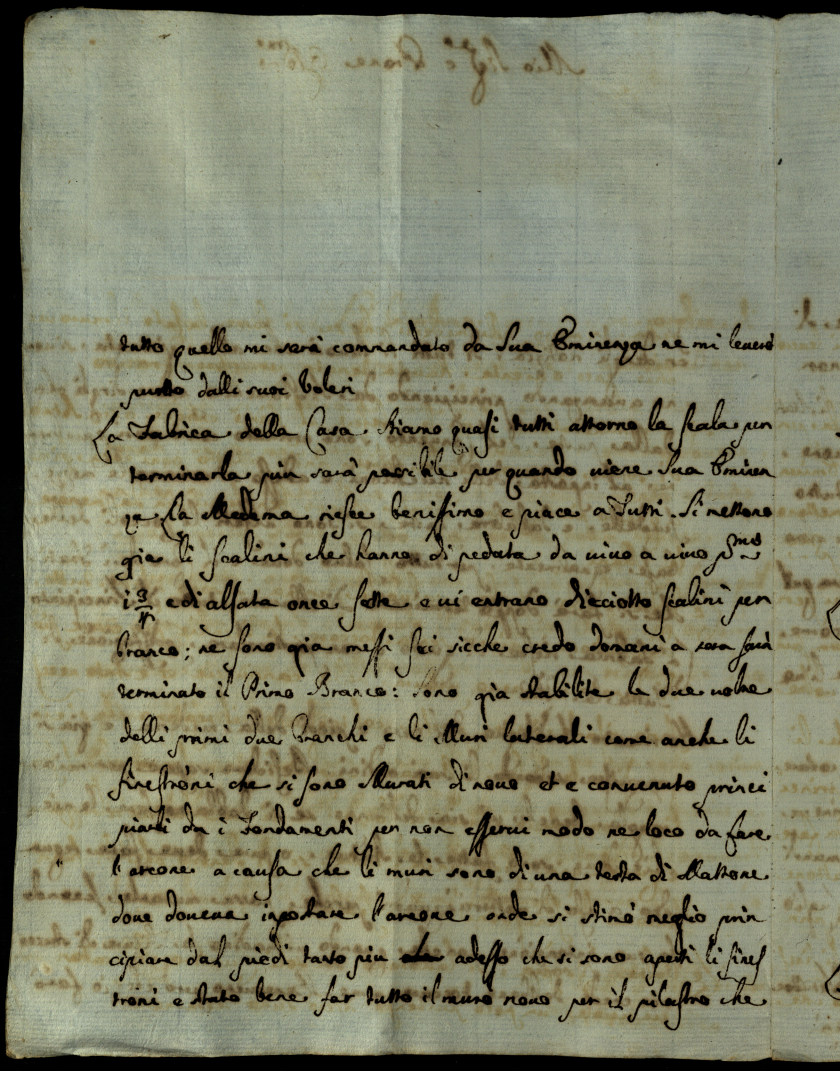 tutto quello mi serà commandato da Sua Eminenza ne mi leuerò
punto dalli suoi Voleri
La Fabrica della Casa stiamo quasi tutti attorno la scala per
terminarla più sarà possibile per quando uiene Sua Eminen
za La Medema riesce benissimo e piace a Tutti. Si mettono
gia li scalini che hanno di pedata da uiuo a uiuo pmi
i 3/4 e di alsata once sette e ui entrano dieciotto scalini per
branco; ne sono gia messi sei sicche credo domani a sera sarà
terminato il Primo Branco: sono gia stabilite le due uolte
delli primi due branchi e li Muri laterali come anche li
finestroni che si sono Murati di nouo et e conuenuto princi
piarli da i Fondamenti per non esserui modo ne loco da fare
l'arcone a causa che li muri sono di una testa di Mattone
doue doueua inpostare l'arcone onde si stimò meglio prin
cipiare dal piedi tanto piu adesso che si sono aperti li fines
troni e stato bene far tutto il muro nouo per il pilastro che